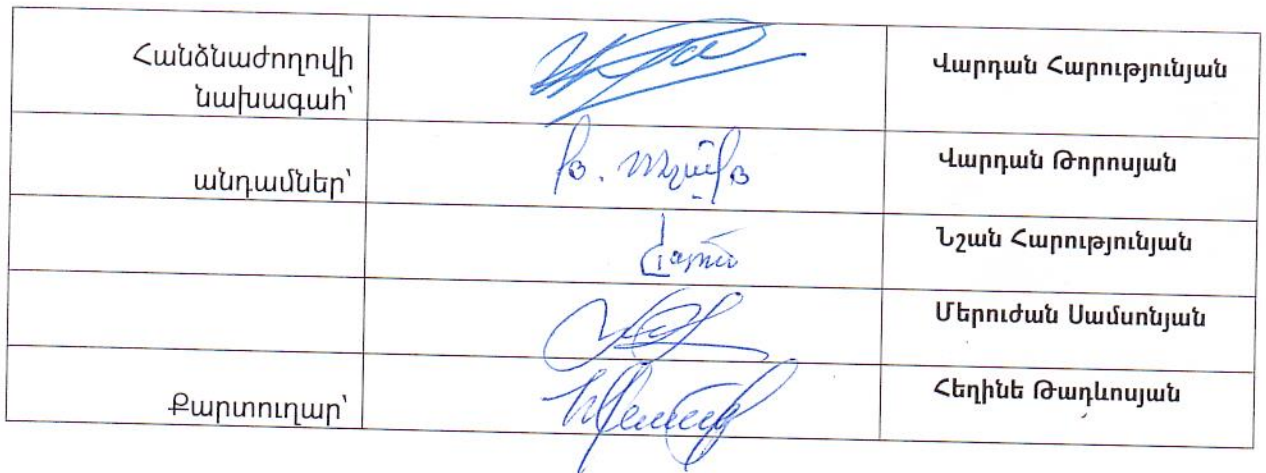 Հանձնաժողովի
նախագահ՝
Վարդան Հարությունյան
անդամներ՝
Վարդան Թորոսյան
Նշան Հարությունյան
Մերուժան Սամսոնյան
Քարտուղար՝
Հեղինե Թադևոսյան